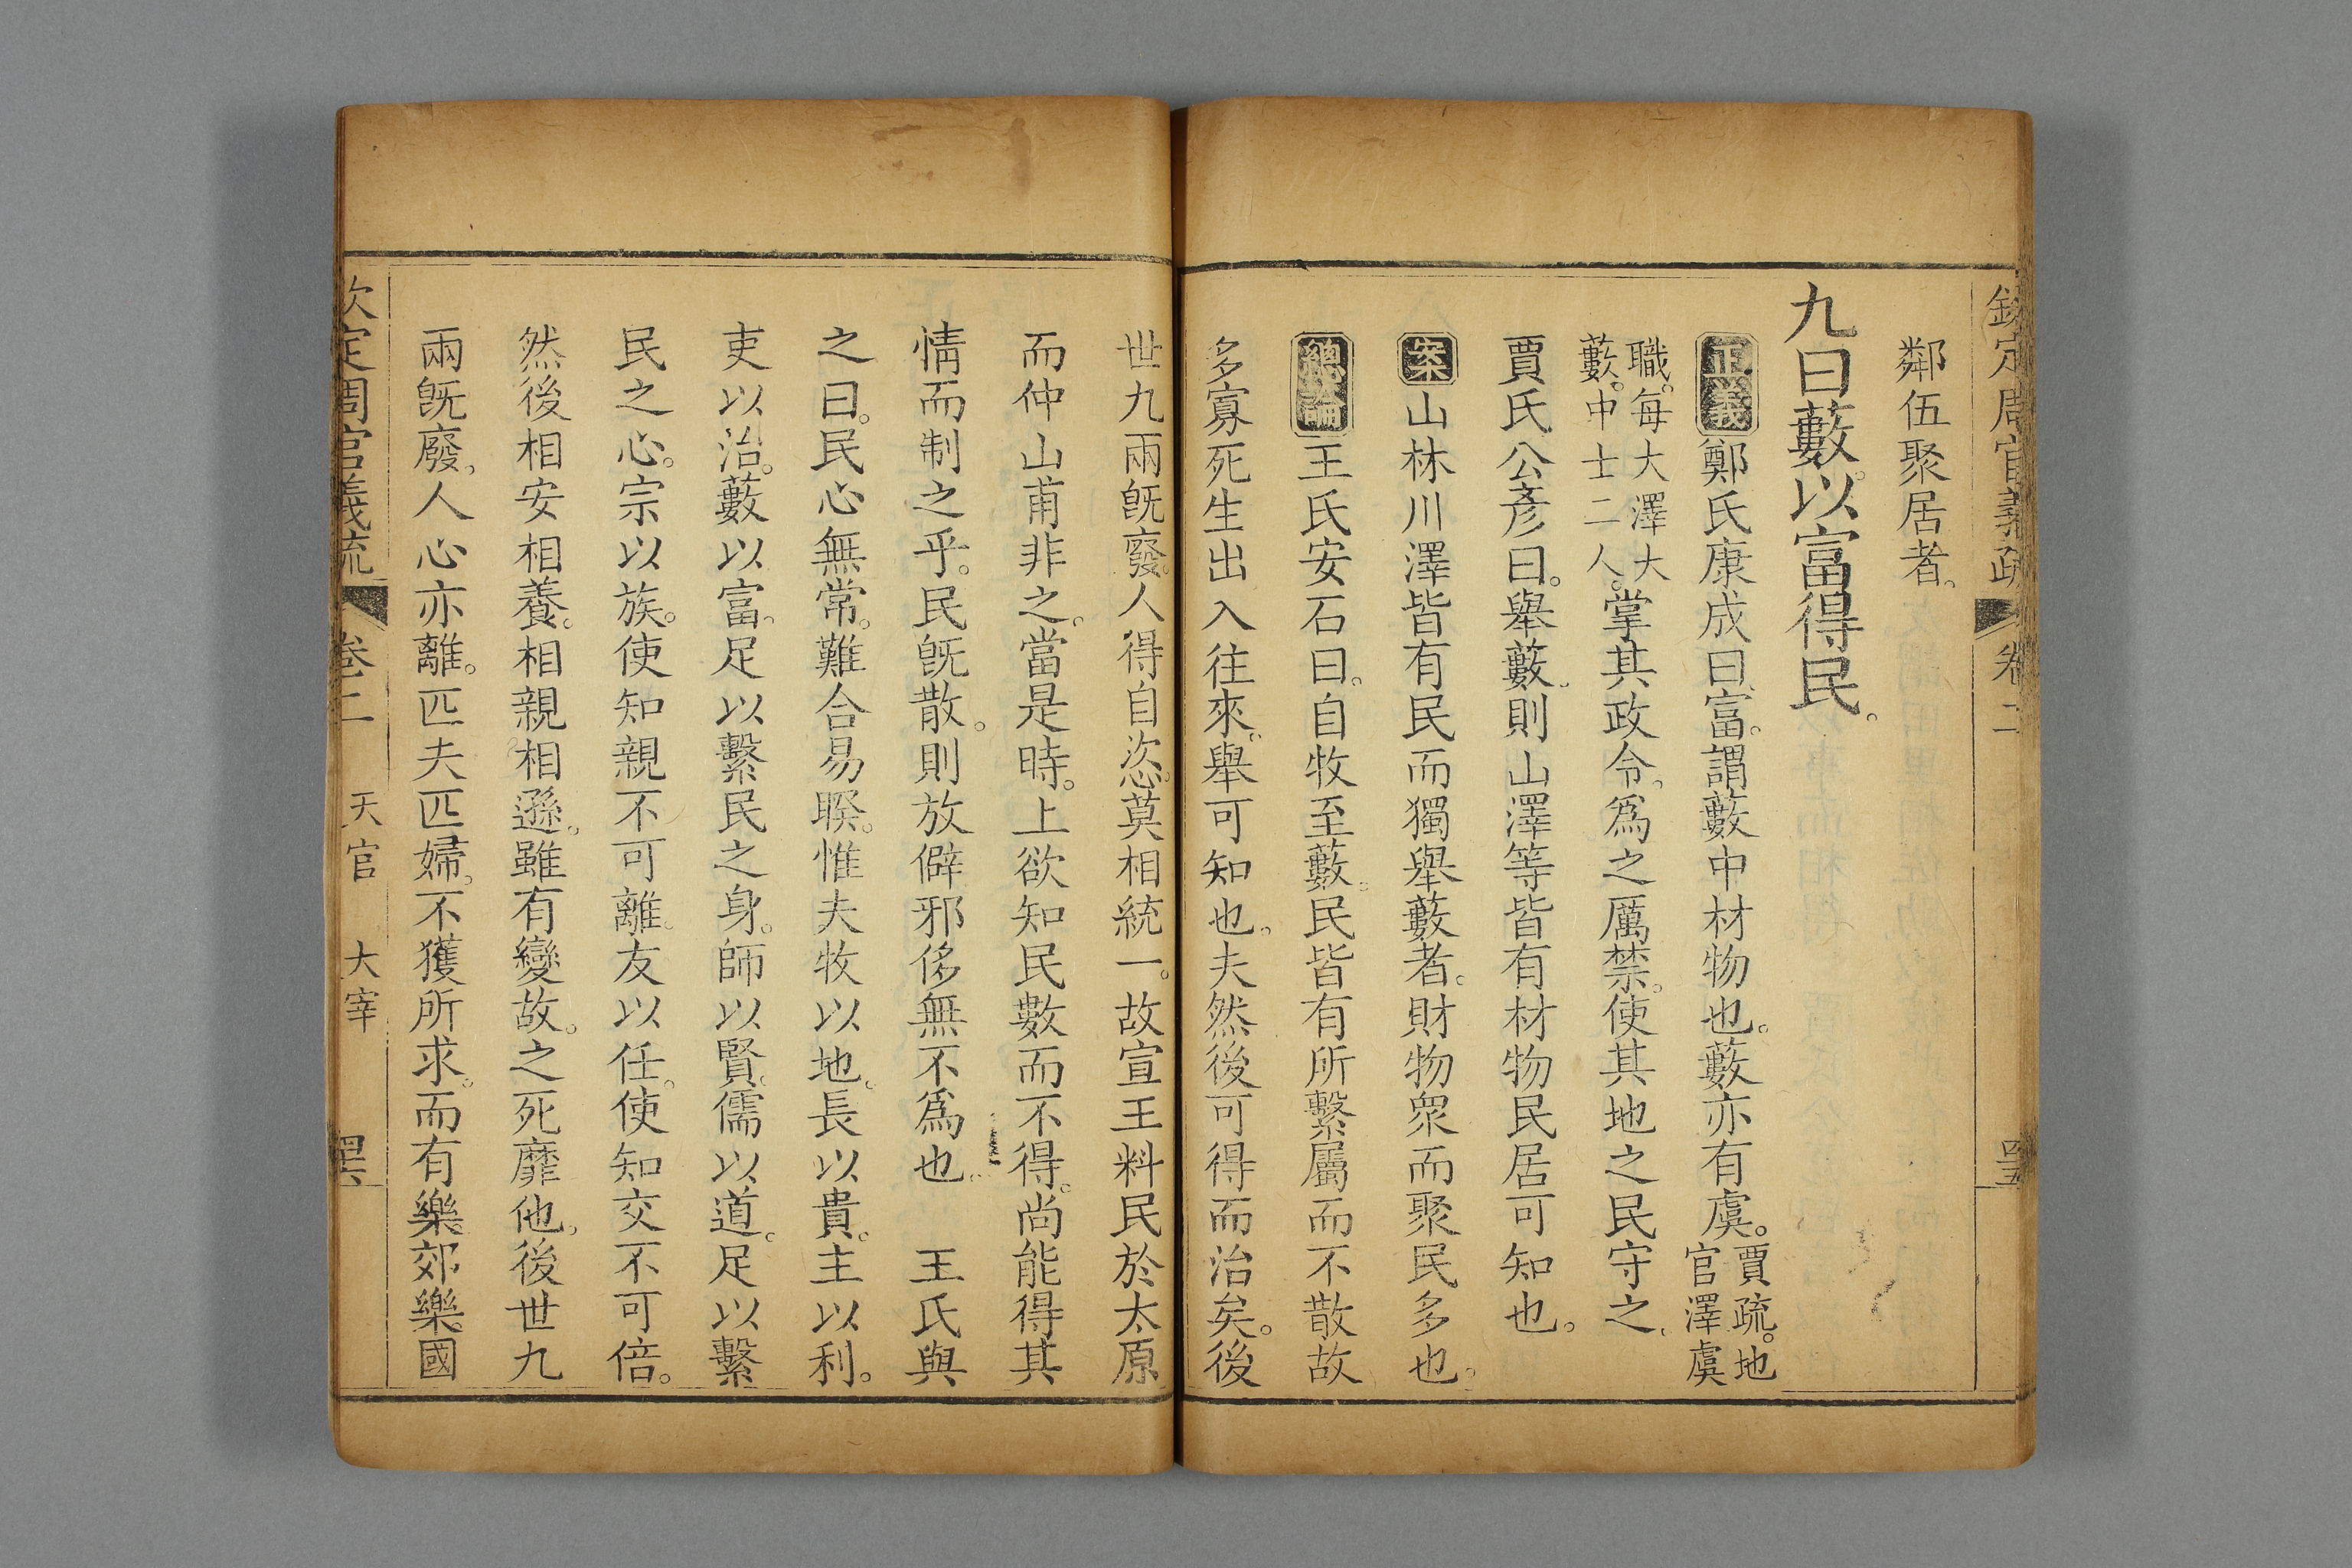 欽定周官義疏 卷二 四五
鄰伍聚居者。
九曰藪。以富得民。
正義 鄭氏康成曰。富。謂藪中材物也。藪亦有虞。賈疏。地官澤虞
職。每大澤大藪。中士二人。掌其政令。爲之厲禁。使其地之民守之。
賈氏公彥曰。舉藪。則山澤等皆有材物民居可知也。
案 山林川澤皆有民而獨舉藪者。財物衆而聚民多也。
總論 王氏安石曰。自牧至藪。民皆有所繫屬而不散故
多寡死生出入往來。舉可知也。夫然後可得而治矣。後
世九兩旣廢。人得自恣。莫相統一。故宣王料民於太原
而仲山甫非之。當是時。上欲知民數而不得。尚能得其
情而制之乎。民旣散。則放僻邪侈無不爲也。 王氏與
之曰。民心無常。難合易睽。惟夫牧以地。長以貴。主以利。
吏以治。藪以富。足以繫民之身。師以賢。儒以道。足以繫
民之心。宗以族。使知親不可離。友以任。使知交不可倍。
然後相安相養。相親相遜。雖有變故。之死靡他。後世九
兩旣廢。人心亦離。匹夫匹婦。不獲所求。而有樂郊樂國
欽定周官義疏 卷二 天官 大宰 四六